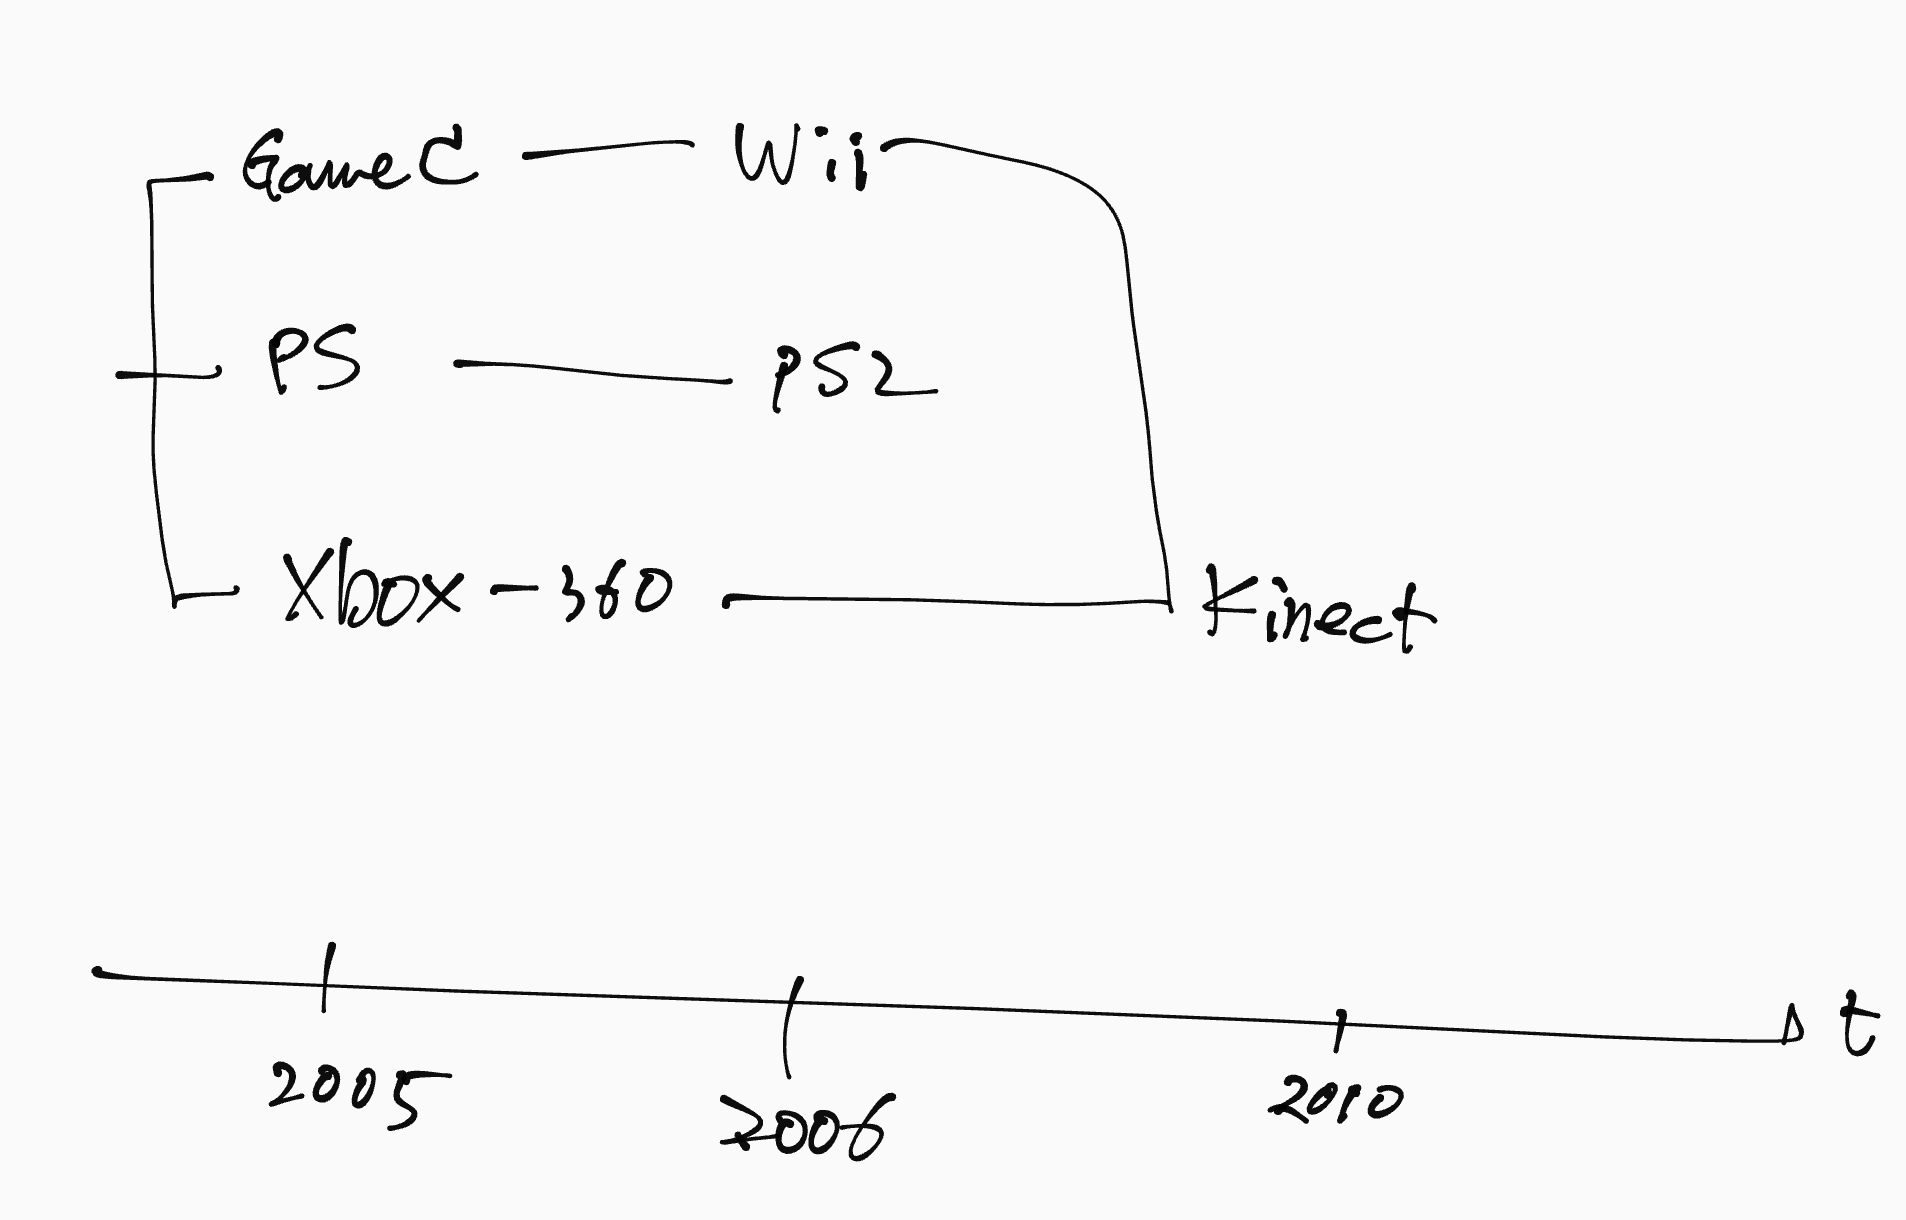 GameC Wii
PS PS2
Xbox-360 Kinect
t
2005 2006 2010